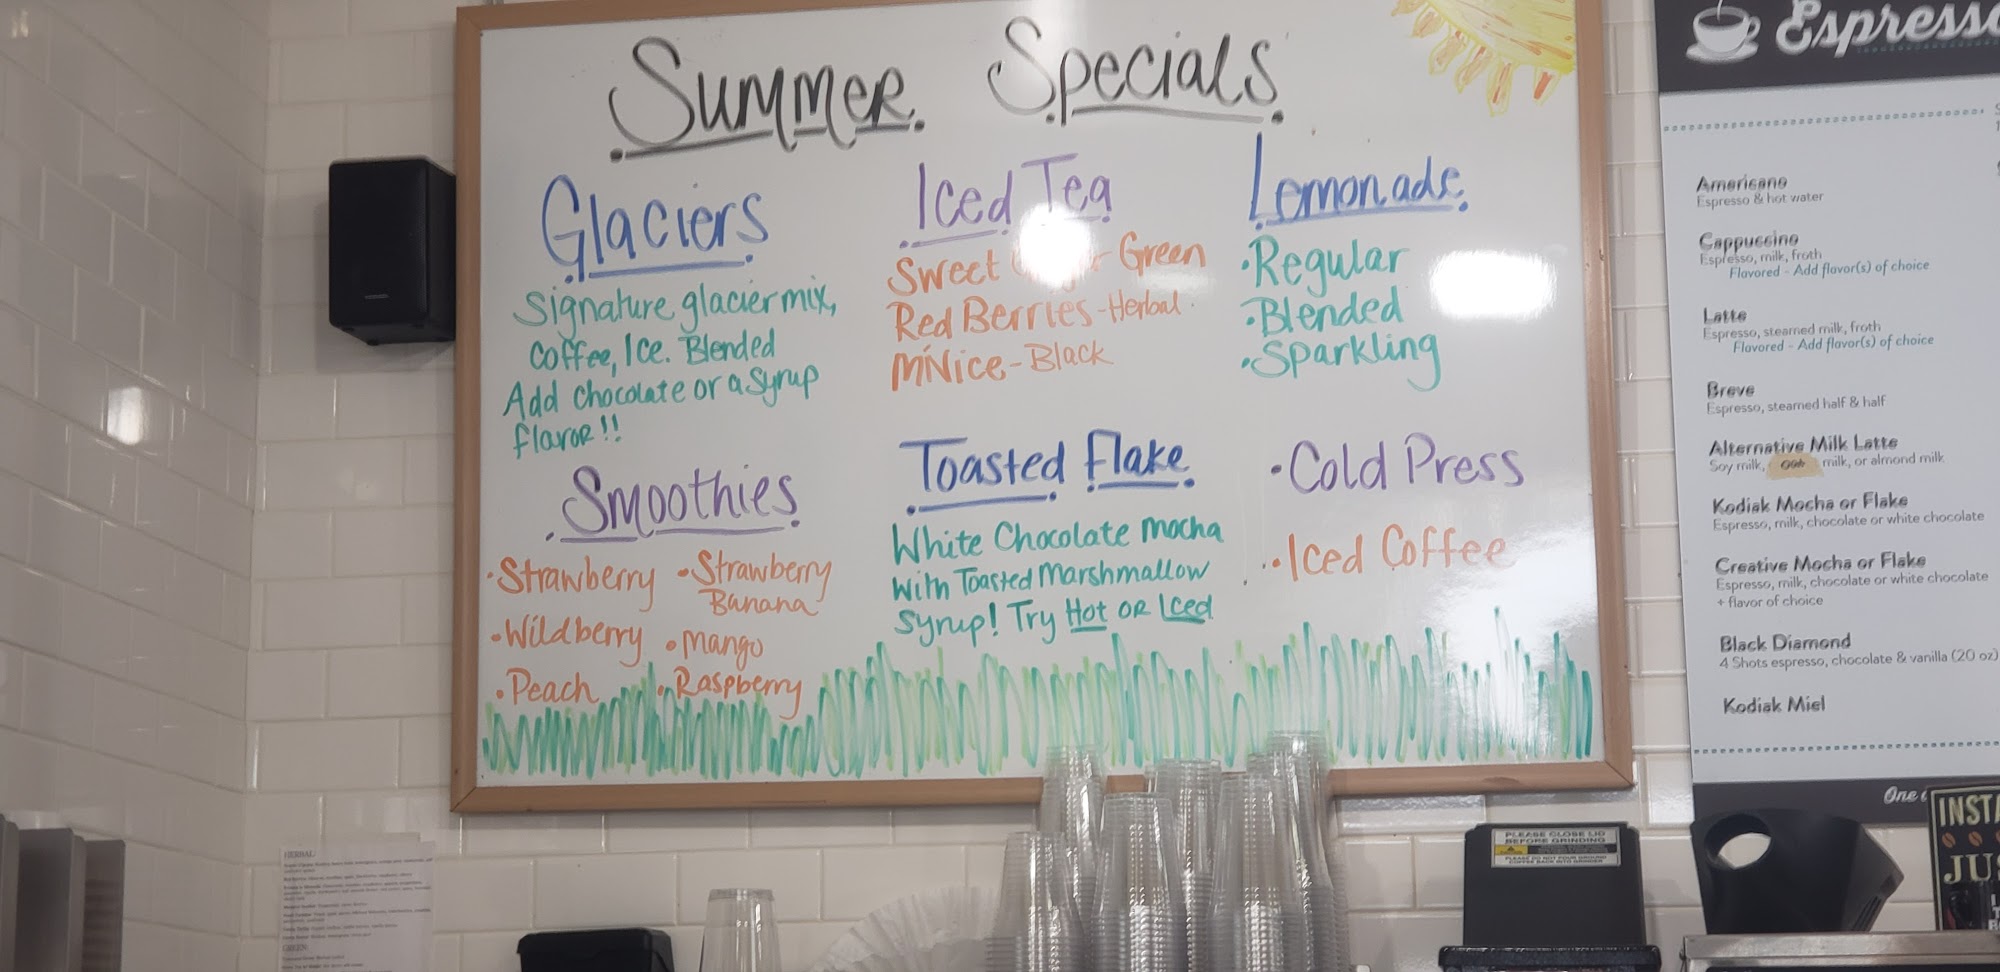 Summer Specials
Glaciers
Signature glacier mix,
Coffee, Ice. Blended
Add chocolate or a syrup
flavor!!
Iced Tea
Sweet Green
Red Berries - Herbal
M'Nice - Black
Lemonade
• Regular
• Blended
• Sparkling
Smoothies
• Strawberry
• Strawberry
Banana
• Wildberry
• Mango
• Peach
• Raspberry
Toasted Flake
White Chocolate Mocha
with Toasted Marshmallow
Syrup! Try Hot or Iced
• Cold Press
• Iced Coffee
Espresso
Americano
Espresso & hot water
Cappuccino
Espresso, milk, froth
Flavored - Add flavor(s) of choice
Latte
Espresso, steamed milk, froth
Flavored - Add flavor(s) of choice
Breve
Espresso, steamed half & half
Alternative Milk Latte
Soy milk, Oat milk, or almond milk
Kodiak Mocha or Flake
Espresso, milk, chocolate or white chocolate
Creative Mocha or Flake
Espresso, milk, chocolate or white chocolate
+ flavor of choice
Black Diamond
4 Shots espresso, chocolate & vanilla (20 oz)
Kodiak Miel
One
PLEASE CLOSE LID
BEFORE GRINDING
PLEASE DO NOT POUR GROUND
COFFEE BACK INTO GRINDER
INSTA
JUS
HERBAL:
GREEN: